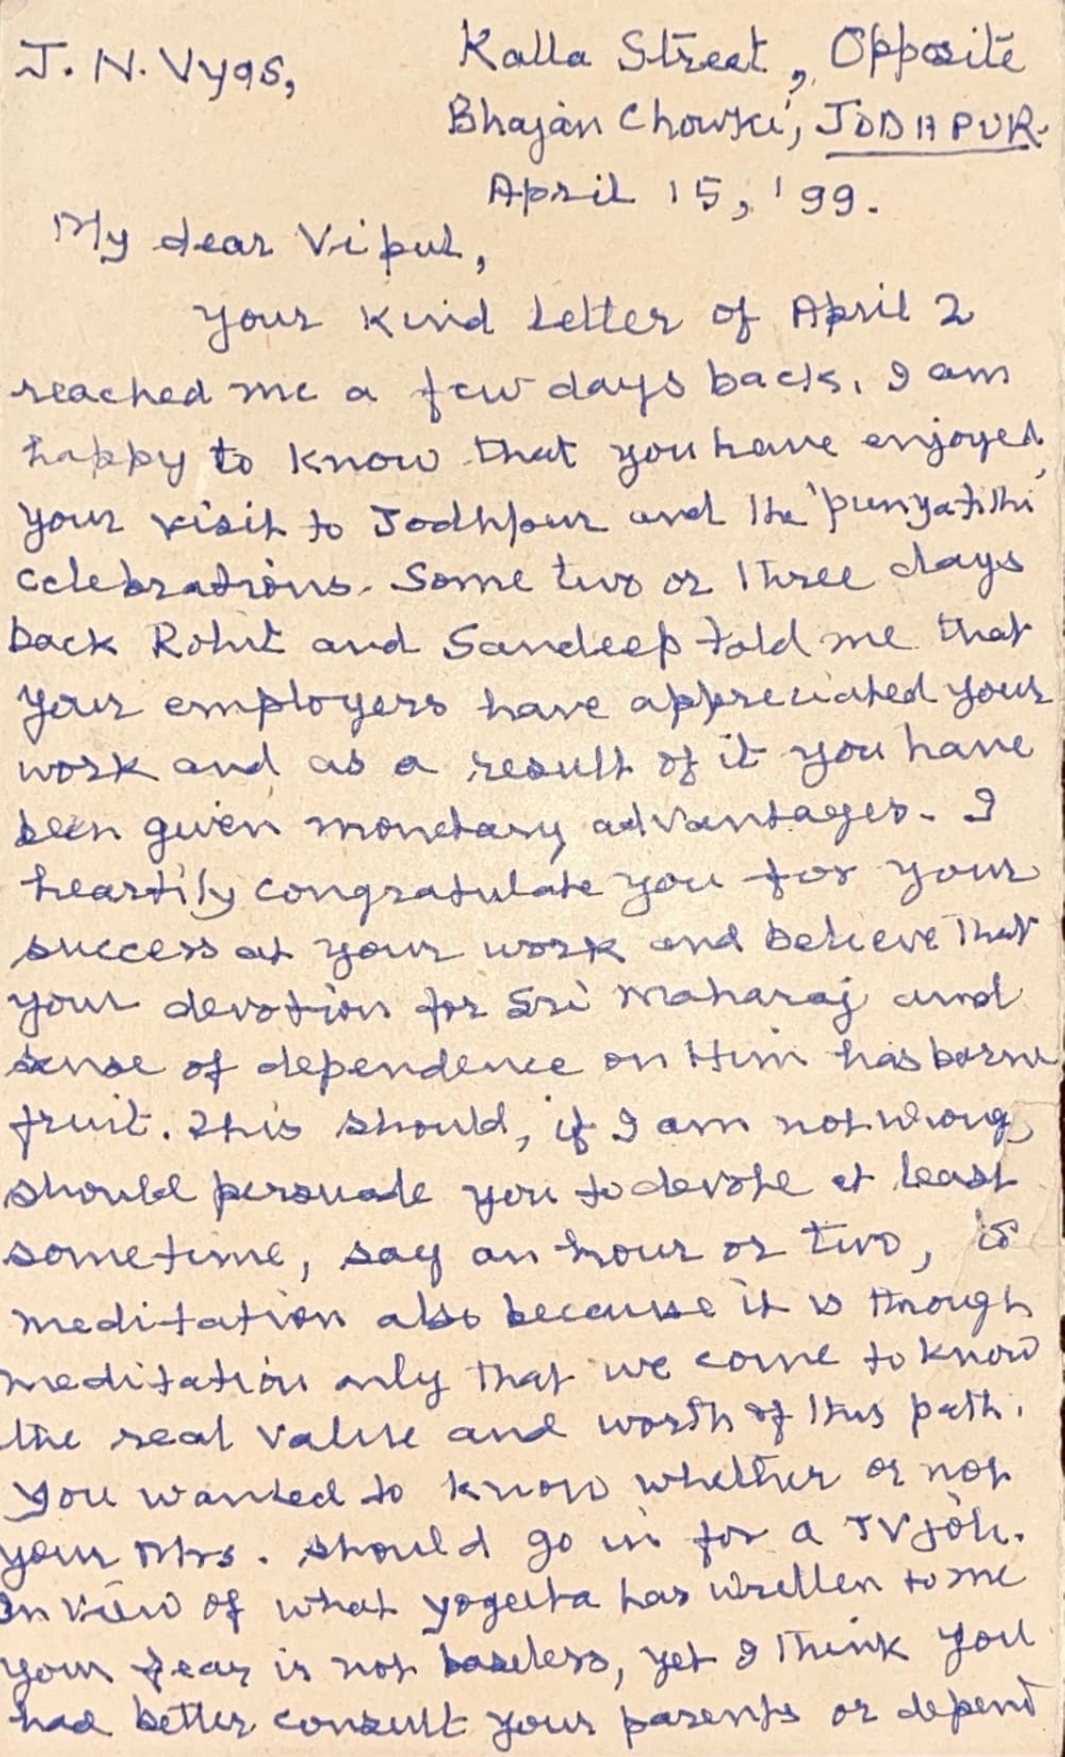 J. N. Vyas,
Kalla Street, Opposite
Bhajan Chowki, JODHPUR.
April 15, '99.
My dear Vipul,
Your kind letter of April 2
reached me a few days back. I am
happy to know that you have enjoyed
your visit to Jodhpur and the 'punyatithi'
celebrations. Some two or three days
back Rohit and Sandeep told me that
your employers have appreciated your
work and as a result of it you have
been given monetary advantages. I
heartily congratulate you for your
success at your work and believe that
your devotion for Sri Maharaj and
sense of dependence on Him has borne
fruit. This should, if I am not wrong,
should persuade you to devote at least
sometime, say an hour or two, to
meditation also because it is through
meditation only that we come to know
the real value and worth of this path.
You wanted to know whether or not
your Mrs. should go in for a TV job.
In view of what Yogeeta has written to me
your fear is not baseless, yet I think you
had better consult your parents or depend